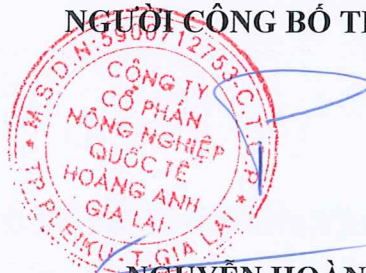 NGƯỜI CÔNG BỐ T
M.S.D.N:5900712753-C.T.C.P
CÔNG TY
CỔ PHẦN
NÔNG NGHIỆP
QUỐC TẾ
HOÀNG ANH
GIA LAI
TP. PLEIKU - T. GIA LAI
NGUYỄN HOÀN